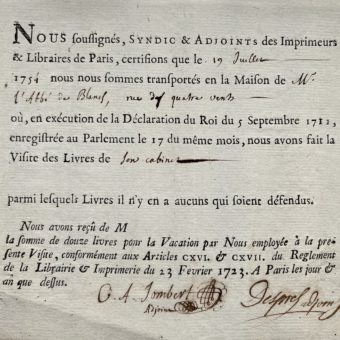 NOUS soussignés, SYNDIC & ADJOINTS des Imprimeurs
& Libraires de Paris, certifions que le 19 Juillet
1754 nous nous sommes transportés en la Maison de Mr
l'Abbé de rue des quatre vents
où, en exécution de la Déclaration du Roi du 5 Septembre 1711,
enregistrée au Parlement le 17 du même mois, nous avons fait la
Visite des Livres de son cabinet
parmi lesquels Livres il n'y en a aucuns qui soient défendus.
Nous avons reçu de M
la somme de douze livres pour la Vacation par Nous employée à la pre-
sente Visite, conformément aux Articles CXVI. & CXVII. du Reglement
de la Librairie & Imprimerie du 23 Février 1723. A Paris les jour &
an que dessus.
C. A. Jombert
Adjoint
Despres adjoint